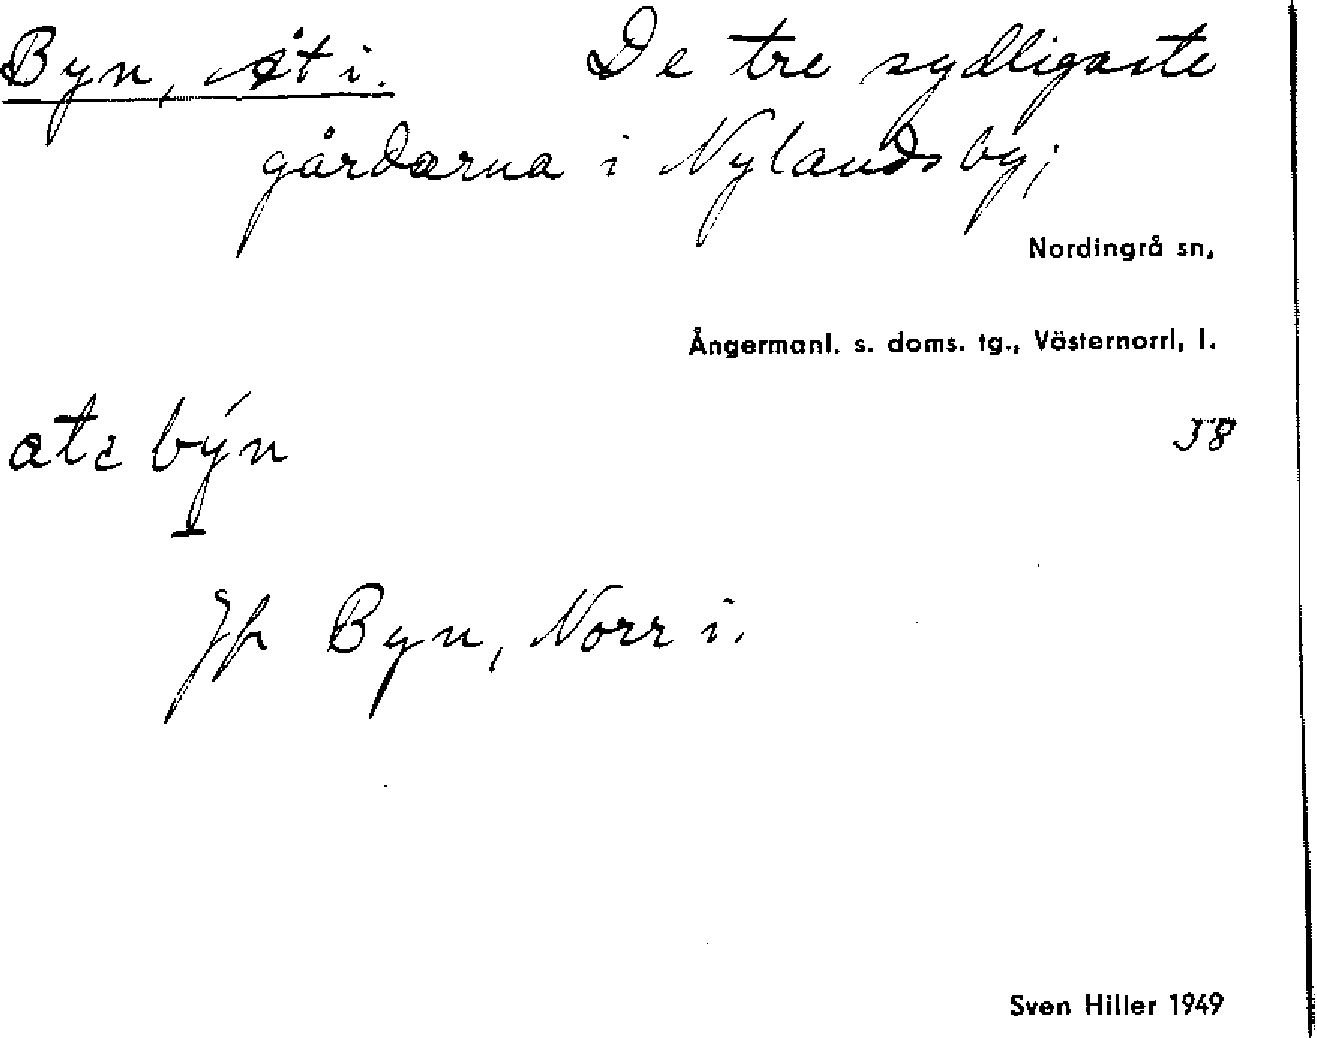 Byn, Åt i. De tre sydligaste
gårdarna i Nylands by;
Nordingrå sn,
Ångermanl. s. doms. tg., Västernorrl, l.
58
ata býn
Jfr Byn, Norr i.
Sven Hiller 1949